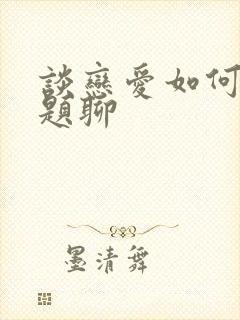 談戀愛如何
題聊
墨清舞